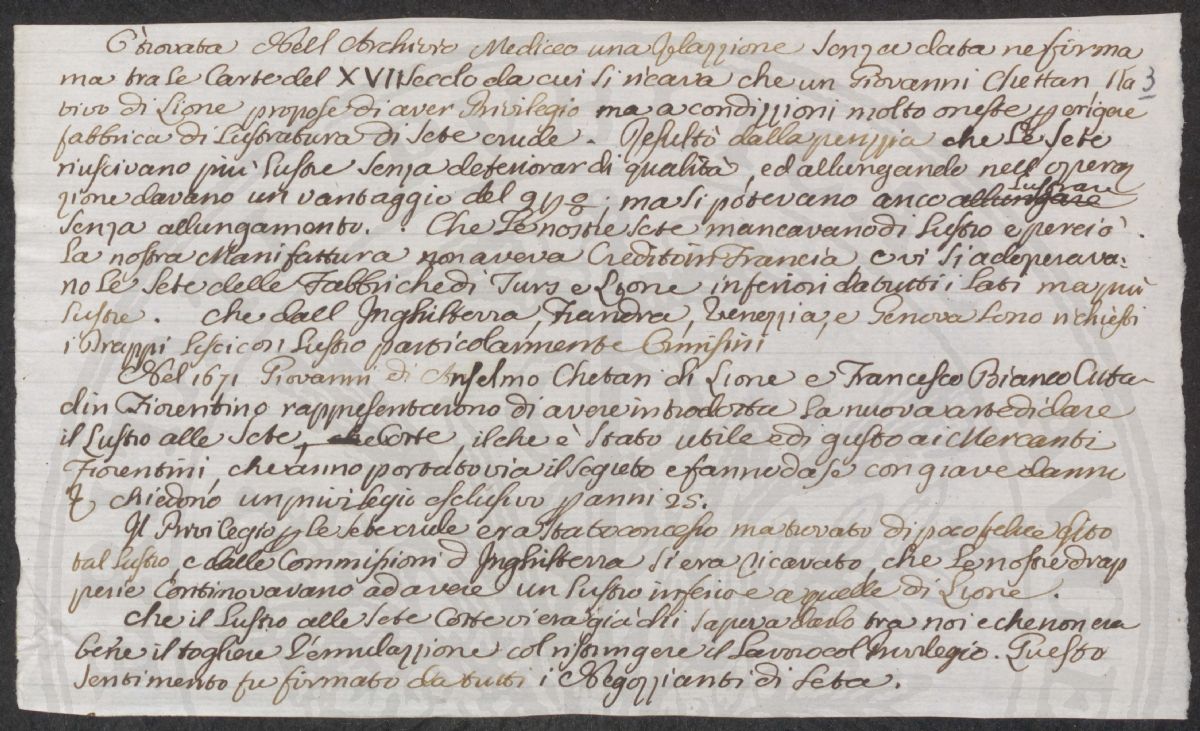 È trovata Nell Archivio Mediceo una Relazzione Senza data ne firma
ma tra le Carte del XVII Secolo da cui Si ricava che un Giovanni Chettan Na 3
tivo di Lione propose di aver Privilegio ma a condizzioni molto oneste p erigere
fabbrica di Lustratura di Sete crude. Resultò dalla perizzia che Le Sete
riuscivano più Lustre Senza deteriorar di qualità, ed allungando nell opera
zione davano un vantaggio del 9 p %; ma Si potevano anco allungare Lustrare
Senza allungamento. Che Le nostre Sete mancavano di Lustro e perciò
La nostra Manifattura non aveva Credito in Francia e vi Si adoperava:
no Le Sete delle Fabbriche di Turs e Lione inferiori da tutti i Lati ma più
Lustre. che dall Inghilterra, Fiandra, Venezzia, e Genova Sono richiesti
i Drappi Lisci con Lustro particolarmente Ermisini
Nel 1671 Giovanni di Anselmo Chetan di Lione e Francesco Bianco Citta-
din Fiorentino rappresentarono di avere introdotta La nuova arte di dare
il Lustro alle Sete, Cotte, il che è Stato utile e di gusto ai Mercanti
Fiorentini, che anno portato via il Segreto e fanno da se con grave danno
e chiedono un privilegio esclusivo p anni 25.
Il Privilegio p le Sete crude era Stato concesso ma trovato di poco felice esito
tal Lustro, e dalle Commissioni d Inghilterra Si era ricavato, che Le nostre drap
perie Continovavano ad avere un Lustro inferiore a quelle di Lione.
che il Lustro alle Sete Cotte vi era già chi Sapeva darlo tra noi e che non era
bene il togliere L'emulazzione col ristringere il Lavoro col Privilegio. Questo
Sentimento fu firmato da tutti i Negozzianti di Seta.